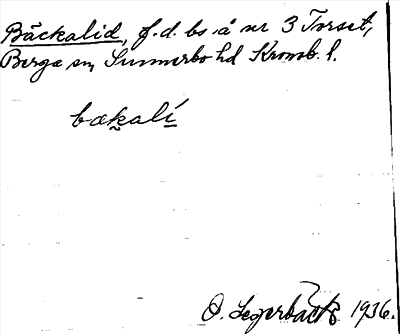 Bäckalid, f.d. bs å nr 3 Torset,
Berga sn, Sunnerbo hd Kronob. l.
bækalí
O. Segerbäck 1936.